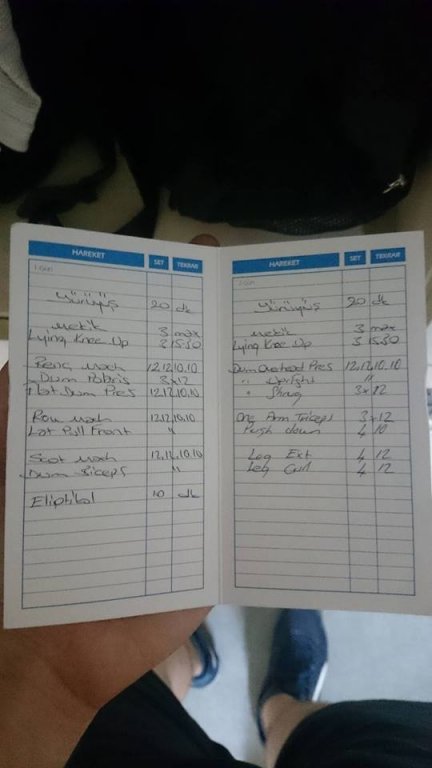 HAREKET SET TEKRAR
Yürüyüş 20 dk
Mekik 3 max
Lying Knee Up 3 15-30
Mach 12,12,10,10
Dum 3x12
Dum Pres 12,12,10,10
Row Mach 12,12,10,10
Lat Pull Front "
Scot Mach 12,12,10,10
Dum Biceps "
Eliptikal 10 dk
HAREKET SET TEKRAR
Yürüyüş 20 dk
Mekik 3 max
Lying Knee Up 3 15-30
Dum Overhead Pres 12,12,10,10
" Upright "
" Shrug 3x12
One Arm Triceps 3x12
Push down 4 10
Leg Ext 4 12
Leg Curl 4 12